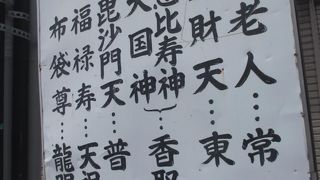 老人…常
財天…東
比寿神
大国神}…香
毘沙門天…普
福禄寿…天
布袋尊…龍